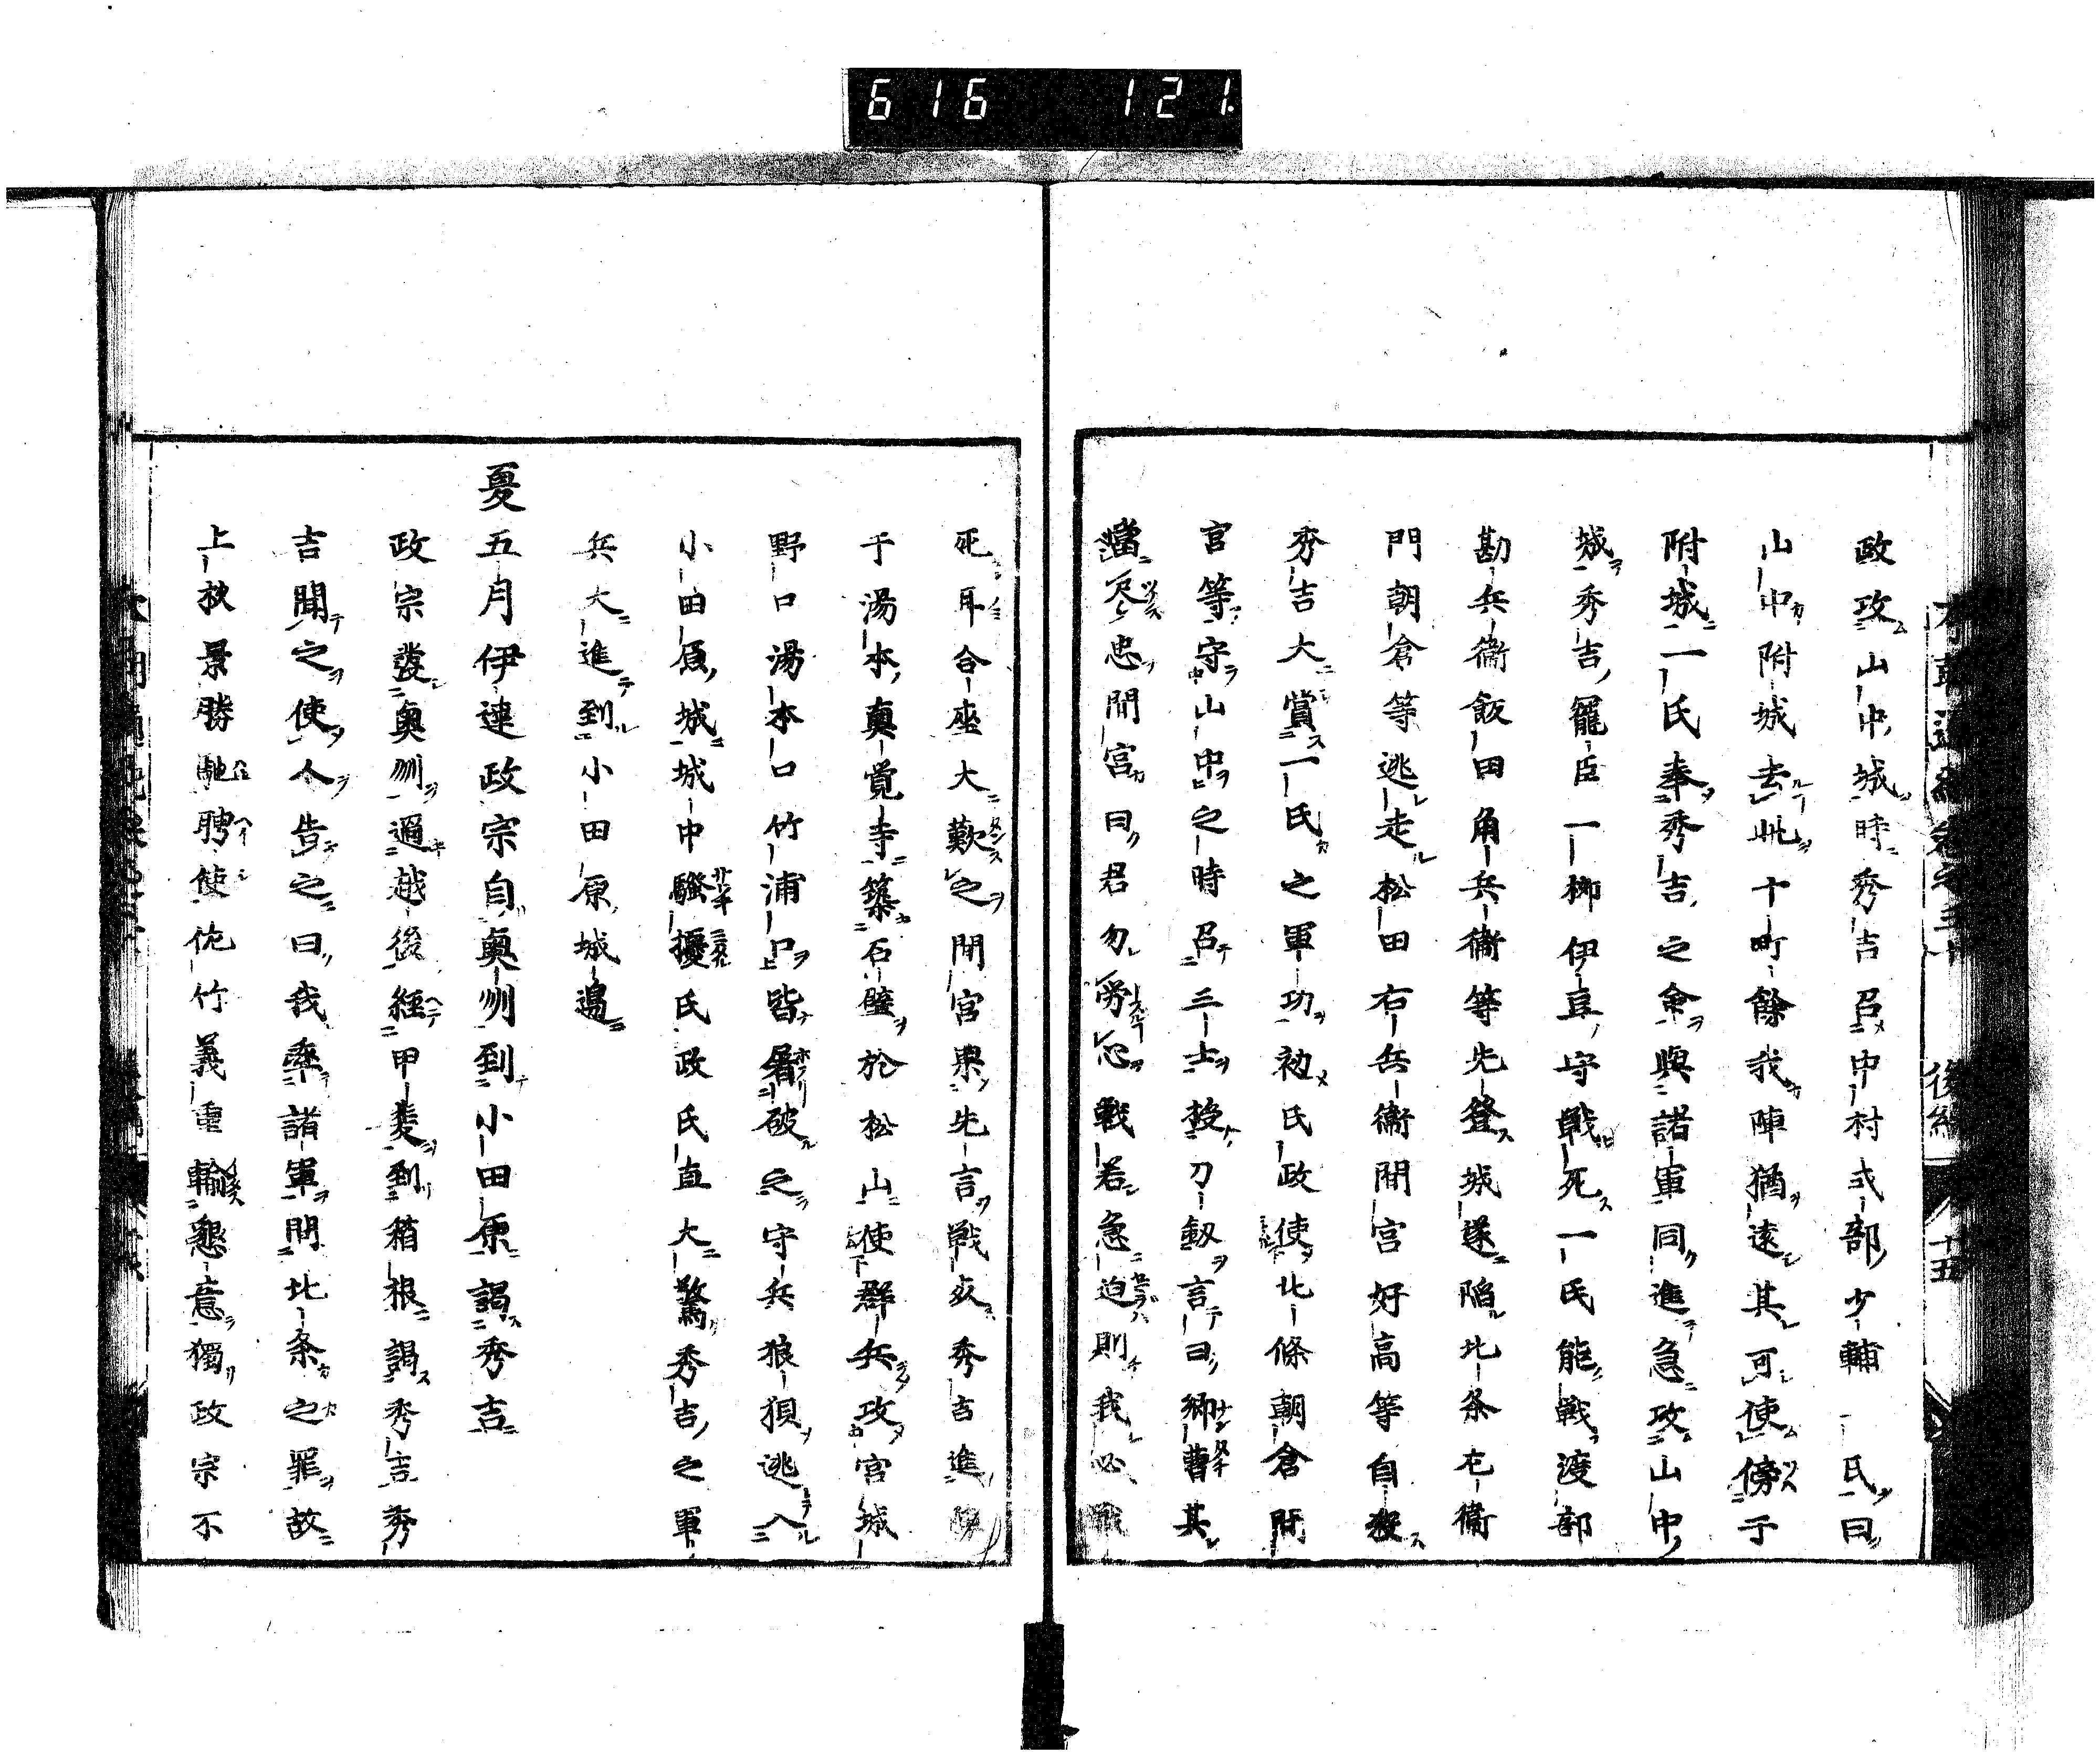 616 121.
政攻山中城時秀吉召中村式部少輔一氏曰
山中附城去此十町餘我陣猶遠其可使傍于
附城一氏奉秀吉之命與諸軍同進急攻山中
城秀吉寵臣一柳伊豆守戦死一氏能戦渡部
勘兵衞飯田角兵衞等先登城遂陥北条左衞
門朝倉等逃走松田右兵衞間宮好高等自殺
秀吉大賞一氏之軍功初氏政使北條朝倉間
宮等守山中之時召三士授刀劔言曰卿曹其
當尽忠間宮曰君勿労心戦若急迫則我必戰
死耳合座大歎之間宮果先言戦死秀吉進陣
于湯本真覚寺築石壁於松山使群兵攻宮城
野口湯本口竹浦口皆屠破之守兵狼狽逃入
小田原城城中騒擾氏政氏直大驚秀吉之軍
兵大進到小田原城邊
夏五月伊達政宗自奥州到小田原謁秀吉
政宗發奥州過越後経甲斐到箱根謁秀吉秀
吉聞之使人告之曰我率諸軍問北条之罪故
上杦景勝馳聘使佐竹義重輸懇意獨政宗不